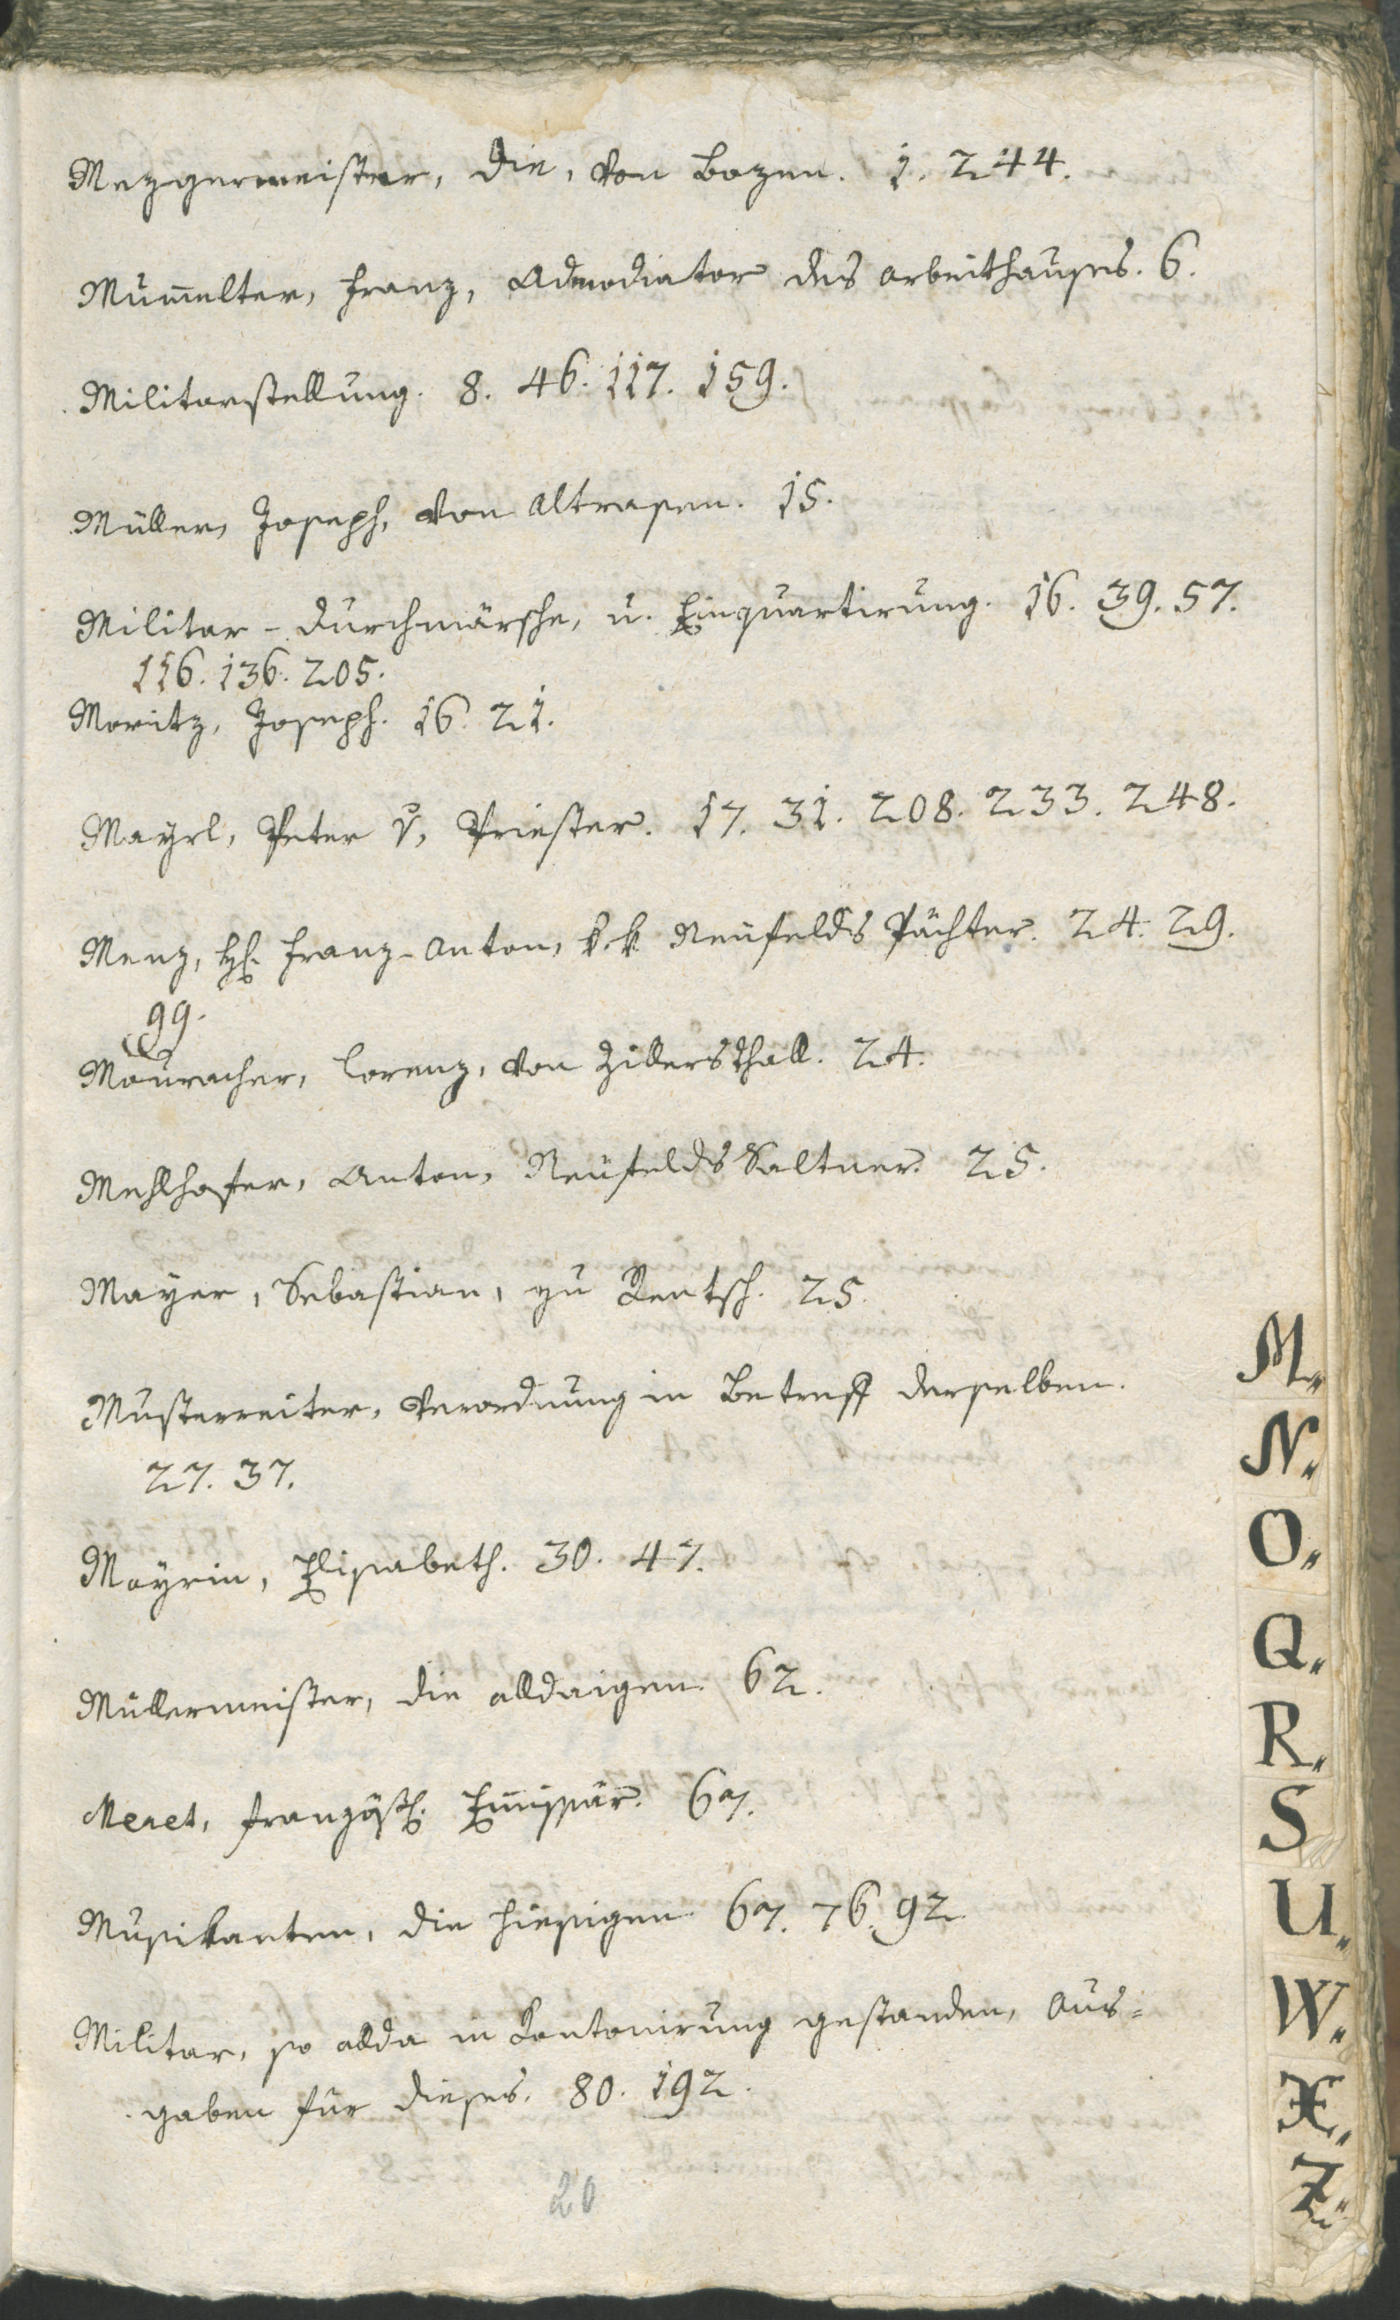 Mezgermeister, die, von Bozen. 1. 244.
Mum̄elter, Franz, Admodiator des Arbeithauses. 6.
Militarstellung. 8. 46. 117. 159.
Müller, Joseph, von Altrasen. 15.
Militar-Durchmärsche, u. Einquartirung. 16. 39. 57.
116. 136. 205.
Moritz, Joseph. 16. 21.
Mayrl, Peter v, Priester. 17. 31. 208. 233. 248.
Menz, H. Franz-Anton, k.k. Neufelds Pächter. 24. 29.
99.
Mauracher, Lorenz, von Zillersthall. 24.
Mehlhofer, Anton, Neufelds Saltner. 25.
Mayer, Sebastian, zu Rentsch. 25.
Musterreiter, Verordnung in Betreff derselben.
27. 37.
Mayrin, Elisabeth. 30. 47.
Müllermeister, die alldaigen. 62.
Meret, französch. Em̄issär. 67.
Musikanten, die hiesigen. 67. 76. 92
Militar, so allda in Kantonirung gestanden, Aus=
gaben für dieses. 80. 192.
20
M.
N.
O.
Q.
R.
S
U.
W.
X.
Z.